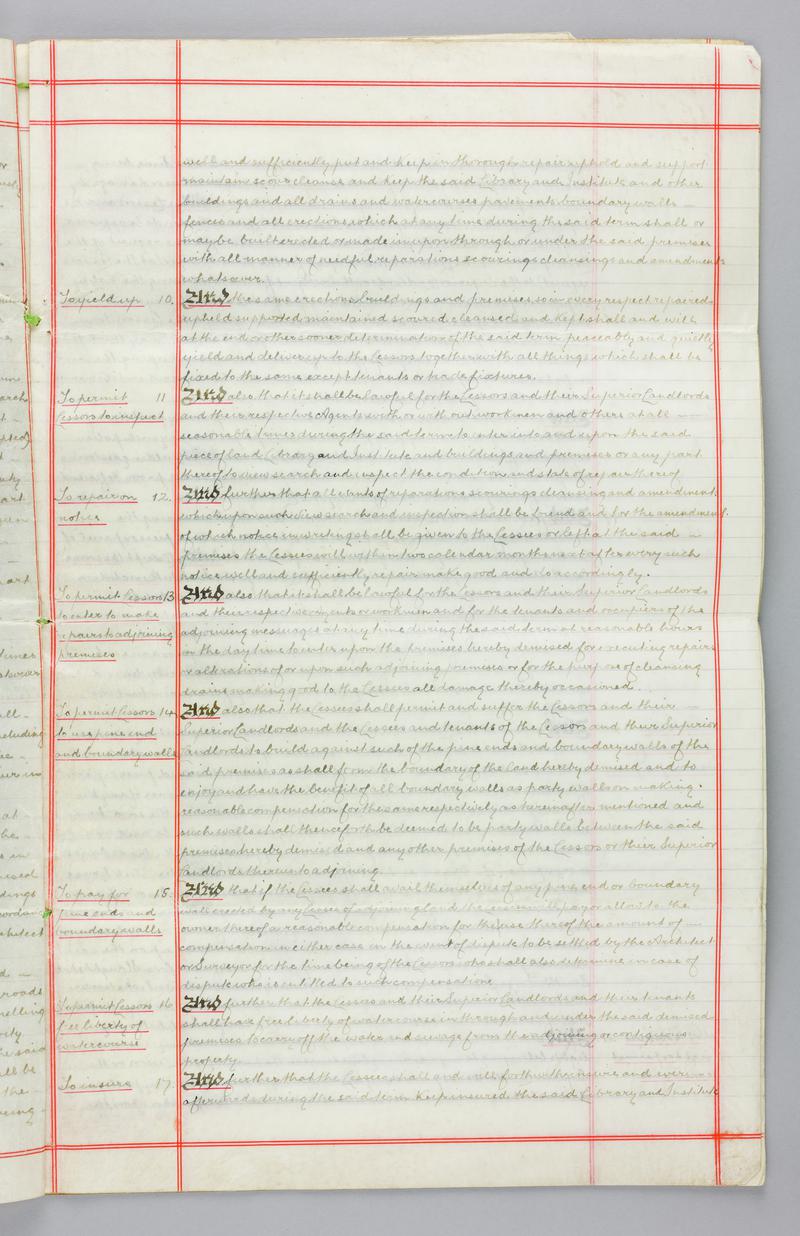 well and sufficiently put and keep in thorough repair uphold and support
maintain scour cleanse and keep the said Library and Institute and other
buildings and all drains and watercourses pavements boundary walls
fences and all erections which at any time during the said term shall or
may be built erected or made in upon through or under the said premises
with all manner of needful reparations scourings cleansings and amendments
whatsoever.
To yield up 10. And the same erections buildings and premises so in every respect repaired
upheld supported maintained scoured cleansed and kept shall and will
at the end or other sooner determination of the said term peaceably and quietly
yield and deliver up to the Lessors together with all things which shall be
fixed to the same except tenants or trade fixtures.
To permit 11 And also that it shall be lawful for the Lessors and their Superior Landlords
Lessors to inspect and their respective Agents with or without workmen and others at all
seasonable times during the said term to enter into and upon the said
piece of land Library and Institute and buildings and premises or any part
thereof to view search and inspect the condition and state of repair thereof
To repair on 12. And further that all wants of reparations scourings cleansing and amendments
notice which upon such view search and inspection shall be found and for the amendment
of which notice in writing shall be given to the Lessees or left at the said
premises the Lessees will within two calendar months next after every such
notice well and sufficiently repair make good and do accordingly.
To permit Lessors 13 And also that it shall be lawful for the Lessors and their Superior Landlords
to enter to make and their respective agents or workmen and for the tenants and occupiers of the
repairs to adjoining adjoining messuages at any time during the said term at reasonable hours
premises in the day time to enter upon the premises hereby demised for executing repairs
or alterations of or upon such adjoining premises or for the purpose of cleansing
drains making good to the Lessees all damage thereby occasioned.
To permit Lessors 14 And also that the Lessees shall permit and suffer the Lessors and their
to use pine end Superior Landlords and the Lessees and tenants of the Lessors and their Superior
and boundary walls Landlords to build against such of the pine ends and boundary walls of the
said premises as shall form the boundary of the land hereby demised and to
enjoy and have the benefit of all boundary walls as party walls on making
reasonable compensation for the same respectively as hereinafter mentioned and
such walls shall thenceforth be deemed to be party walls between the said
premises hereby demised and any other premises of the Lessors or their Superior
Landlords thereunto adjoining.
To pay for 15. And that if the Lessees shall avail themselves of any pine end or boundary
pine ends and wall erected by any Lessee of adjoining land the Lessees will pay or allow to the
boundary walls owner thereof a reasonable compensation for the use thereof the amount of
compensation in either case in the event of dispute to be settled by the Architect
or Surveyor for the time being of the Lessors who shall also determine in case of
dispute who is entitled to such compensation
To permit Lessors 16 And further that the Lessors and their Superior Landlords and their tenants
free liberty of shall have free liberty of watercourse in through and under the said demised
watercourse premises to carry off the water and sewage from the adjoining or contiguous
property.
To insure 17. And further that the Lessees shall and will forthwith insure and
afterwards during the said term keep insured the said Library and Institute